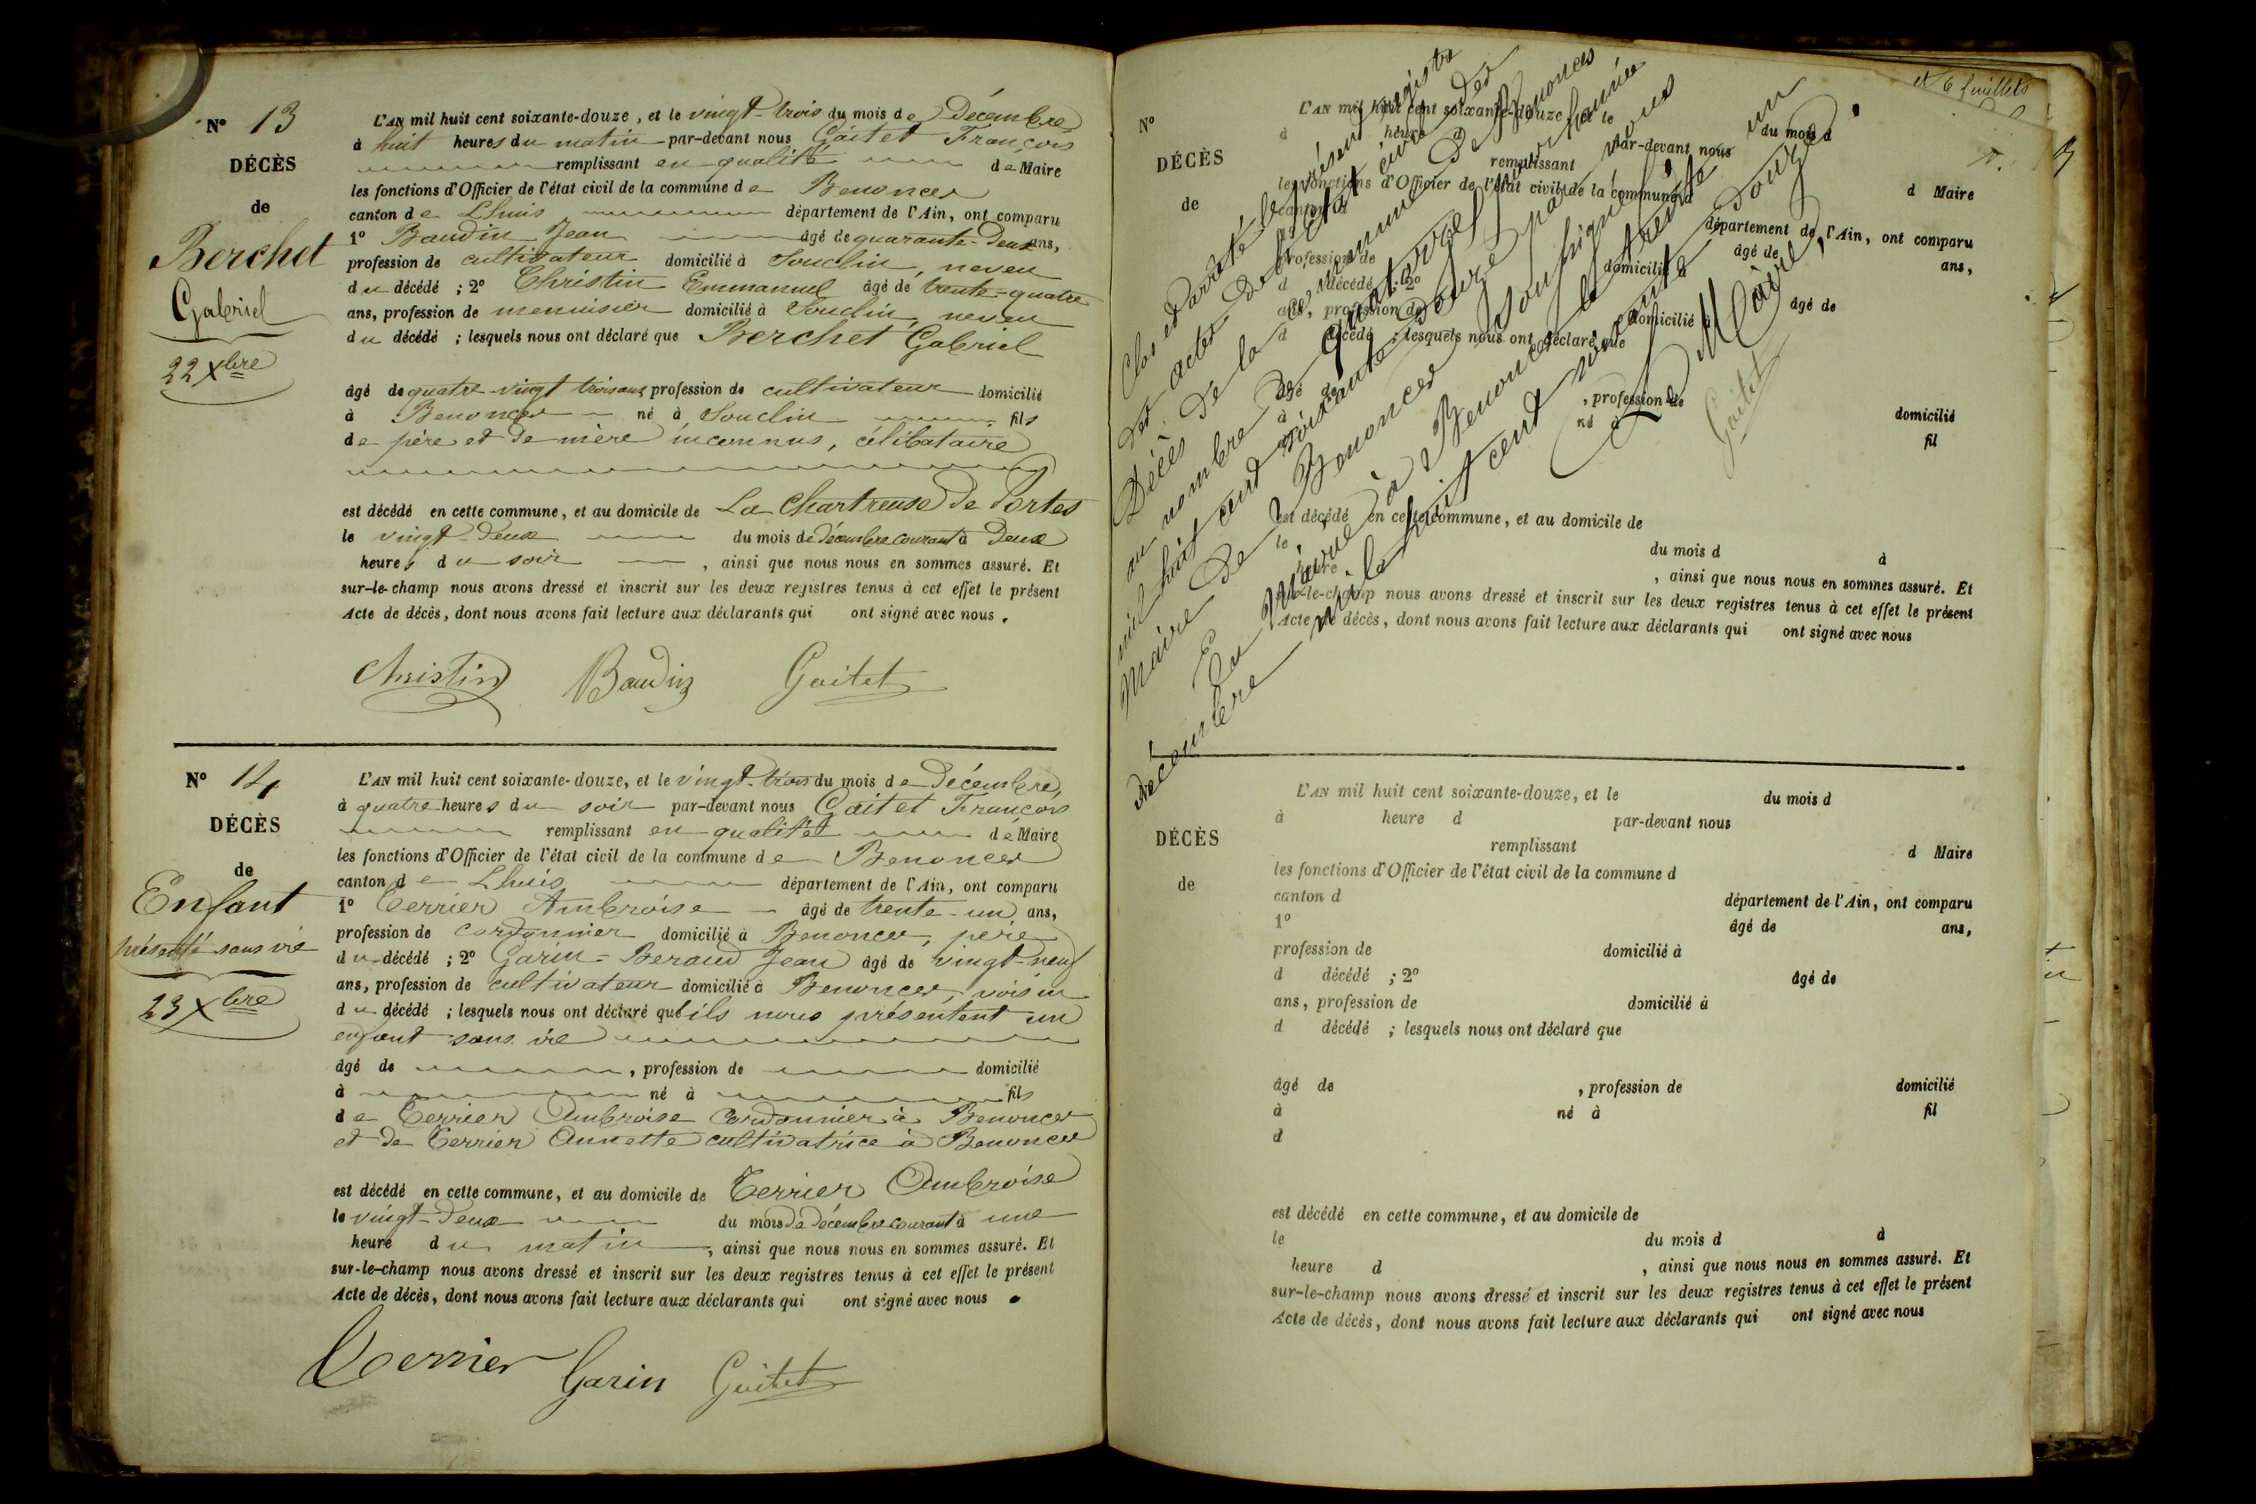 N° 13
DÉCÈS
de
Berchet
Gabriel
22 Xbre
L'AN mil huit cent soixante-douze, et le vingt-trois du mois de Décembre,
à huit heures du matin par-devant nous Gaitet François
remplissant en qualité de Maire
les fonctions d'Officier de l'état civil de la commune de Benonces
canton de Lhuis département de l'Ain, ont comparu
1° Baudin Jean âgé de quarante-deux ans,
profession de cultivateur domicilié à Souclin, neveu
du décédé ; 2° Christin Emmanuel âgé de trente-quatre
ans, profession de menuisier domicilié à Souclin, neveu
du décédé ; lesquels nous ont déclaré que Berchet Gabriel
âgé de quatre-vingt trois ans, profession de cultivateur domicilié
à Benonces né à Souclin fils
de père et de mère inconnus, célibataire
est décédé en cette commune, et au domicile de La Chartreuse de Portes
le vingt-deux du mois de décembre courant à deux
heures du soir , ainsi que nous nous en sommes assuré. Et
sur-le-champ nous avons dressé et inscrit sur les deux registres tenus à cet effet le présent
Acte de décès, dont nous avons fait lecture aux déclarants qui ont signé avec nous.
Christin Baudin Gaitet
N° 14
DÉCÈS
de
Enfant
présenté sans vie
23 Xbre
L'AN mil huit cent soixante-douze, et le vingt-trois du mois de Décembre,
à quatre heures du soir par-devant nous Gaitet François
remplissant en qualité de Maire
les fonctions d'Officier de l'état civil de la commune de Benonces
canton de Lhuis département de l'Ain, ont comparu
1° Terrier Ambroise âgé de trente-un ans,
profession de cordonnier domicilié à Benonces, père
du décédé ; 2° Garin-Beraud Jean âgé de vingt-neuf
ans, profession de cultivateur domicilié à Benonces, voisin
du décédé ; lesquels nous ont déclaré qu'ils nous présentent un
enfant sans vie
âgé de , profession de domicilié
à né à fils
de Terrier Ambroise cordonnier à Benonces
et de Terrier Annette cultivatrice à Benonces
est décédé en cette commune, et au domicile de Terrier Ambroise
le vingt-deux du mois de décembre courant à une
heure du matin , ainsi que nous nous en sommes assuré. Et
sur-le-champ nous avons dressé et inscrit sur les deux registres tenus à cet effet le présent
Acte de décès, dont nous avons fait lecture aux déclarants qui ont signé avec nous.
Terrier Garin Gaitet
et 6 feuillets
Clos et arrêté le présent registre
des actes de l'Etat civil des
Décès de la commune de Benonces
au nombre de quatorze pour l'année
mil huit cent soixante douze par nous
Maire de Benonces soussigné
En Mairie à Benonces le trente un
décembre mil huit cent soixante douze.
Le Maire,
Gaitet
N°
DÉCÈS
de
L'AN mil huit cent soixante-douze, et le du mois d
à heure d par-devant nous
remplissant d Maire
les fonctions d'Officier de l'état civil de la commune d
canton d département de l'Ain, ont comparu
âgé de ans,
profession de domicilié à
d décédé ; 2° âgé de
ans, profession de domicilié à
d décédé ; lesquels nous ont déclaré que
âgé de , profession de domicilié
à né à fil
est décédé en cette commune, et au domicile de
le du mois d à
heure , ainsi que nous nous en sommes assuré. Et
sur-le-champ nous avons dressé et inscrit sur les deux registres tenus à cet effet le présent
Acte de décès, dont nous avons fait lecture aux déclarants qui ont signé avec nous
DÉCÈS
de
L'AN mil huit cent soixante-douze, et le du mois d
à heure d par-devant nous
remplissant d Maire
les fonctions d'Officier de l'état civil de la commune d
canton d département de l'Ain, ont comparu
1° âgé de ans,
profession de domicilié à
d décédé ; 2° âgé de
ans, profession de domicilié à
d décédé ; lesquels nous ont déclaré que
âgé de , profession de domicilié
à né à fil
d
est décédé en cette commune, et au domicile de
le du mois d à
heure d , ainsi que nous nous en sommes assuré. Et
sur-le-champ nous avons dressé et inscrit sur les deux registres tenus à cet effet le présent
Acte de décès, dont nous avons fait lecture aux déclarants qui ont signé avec nous